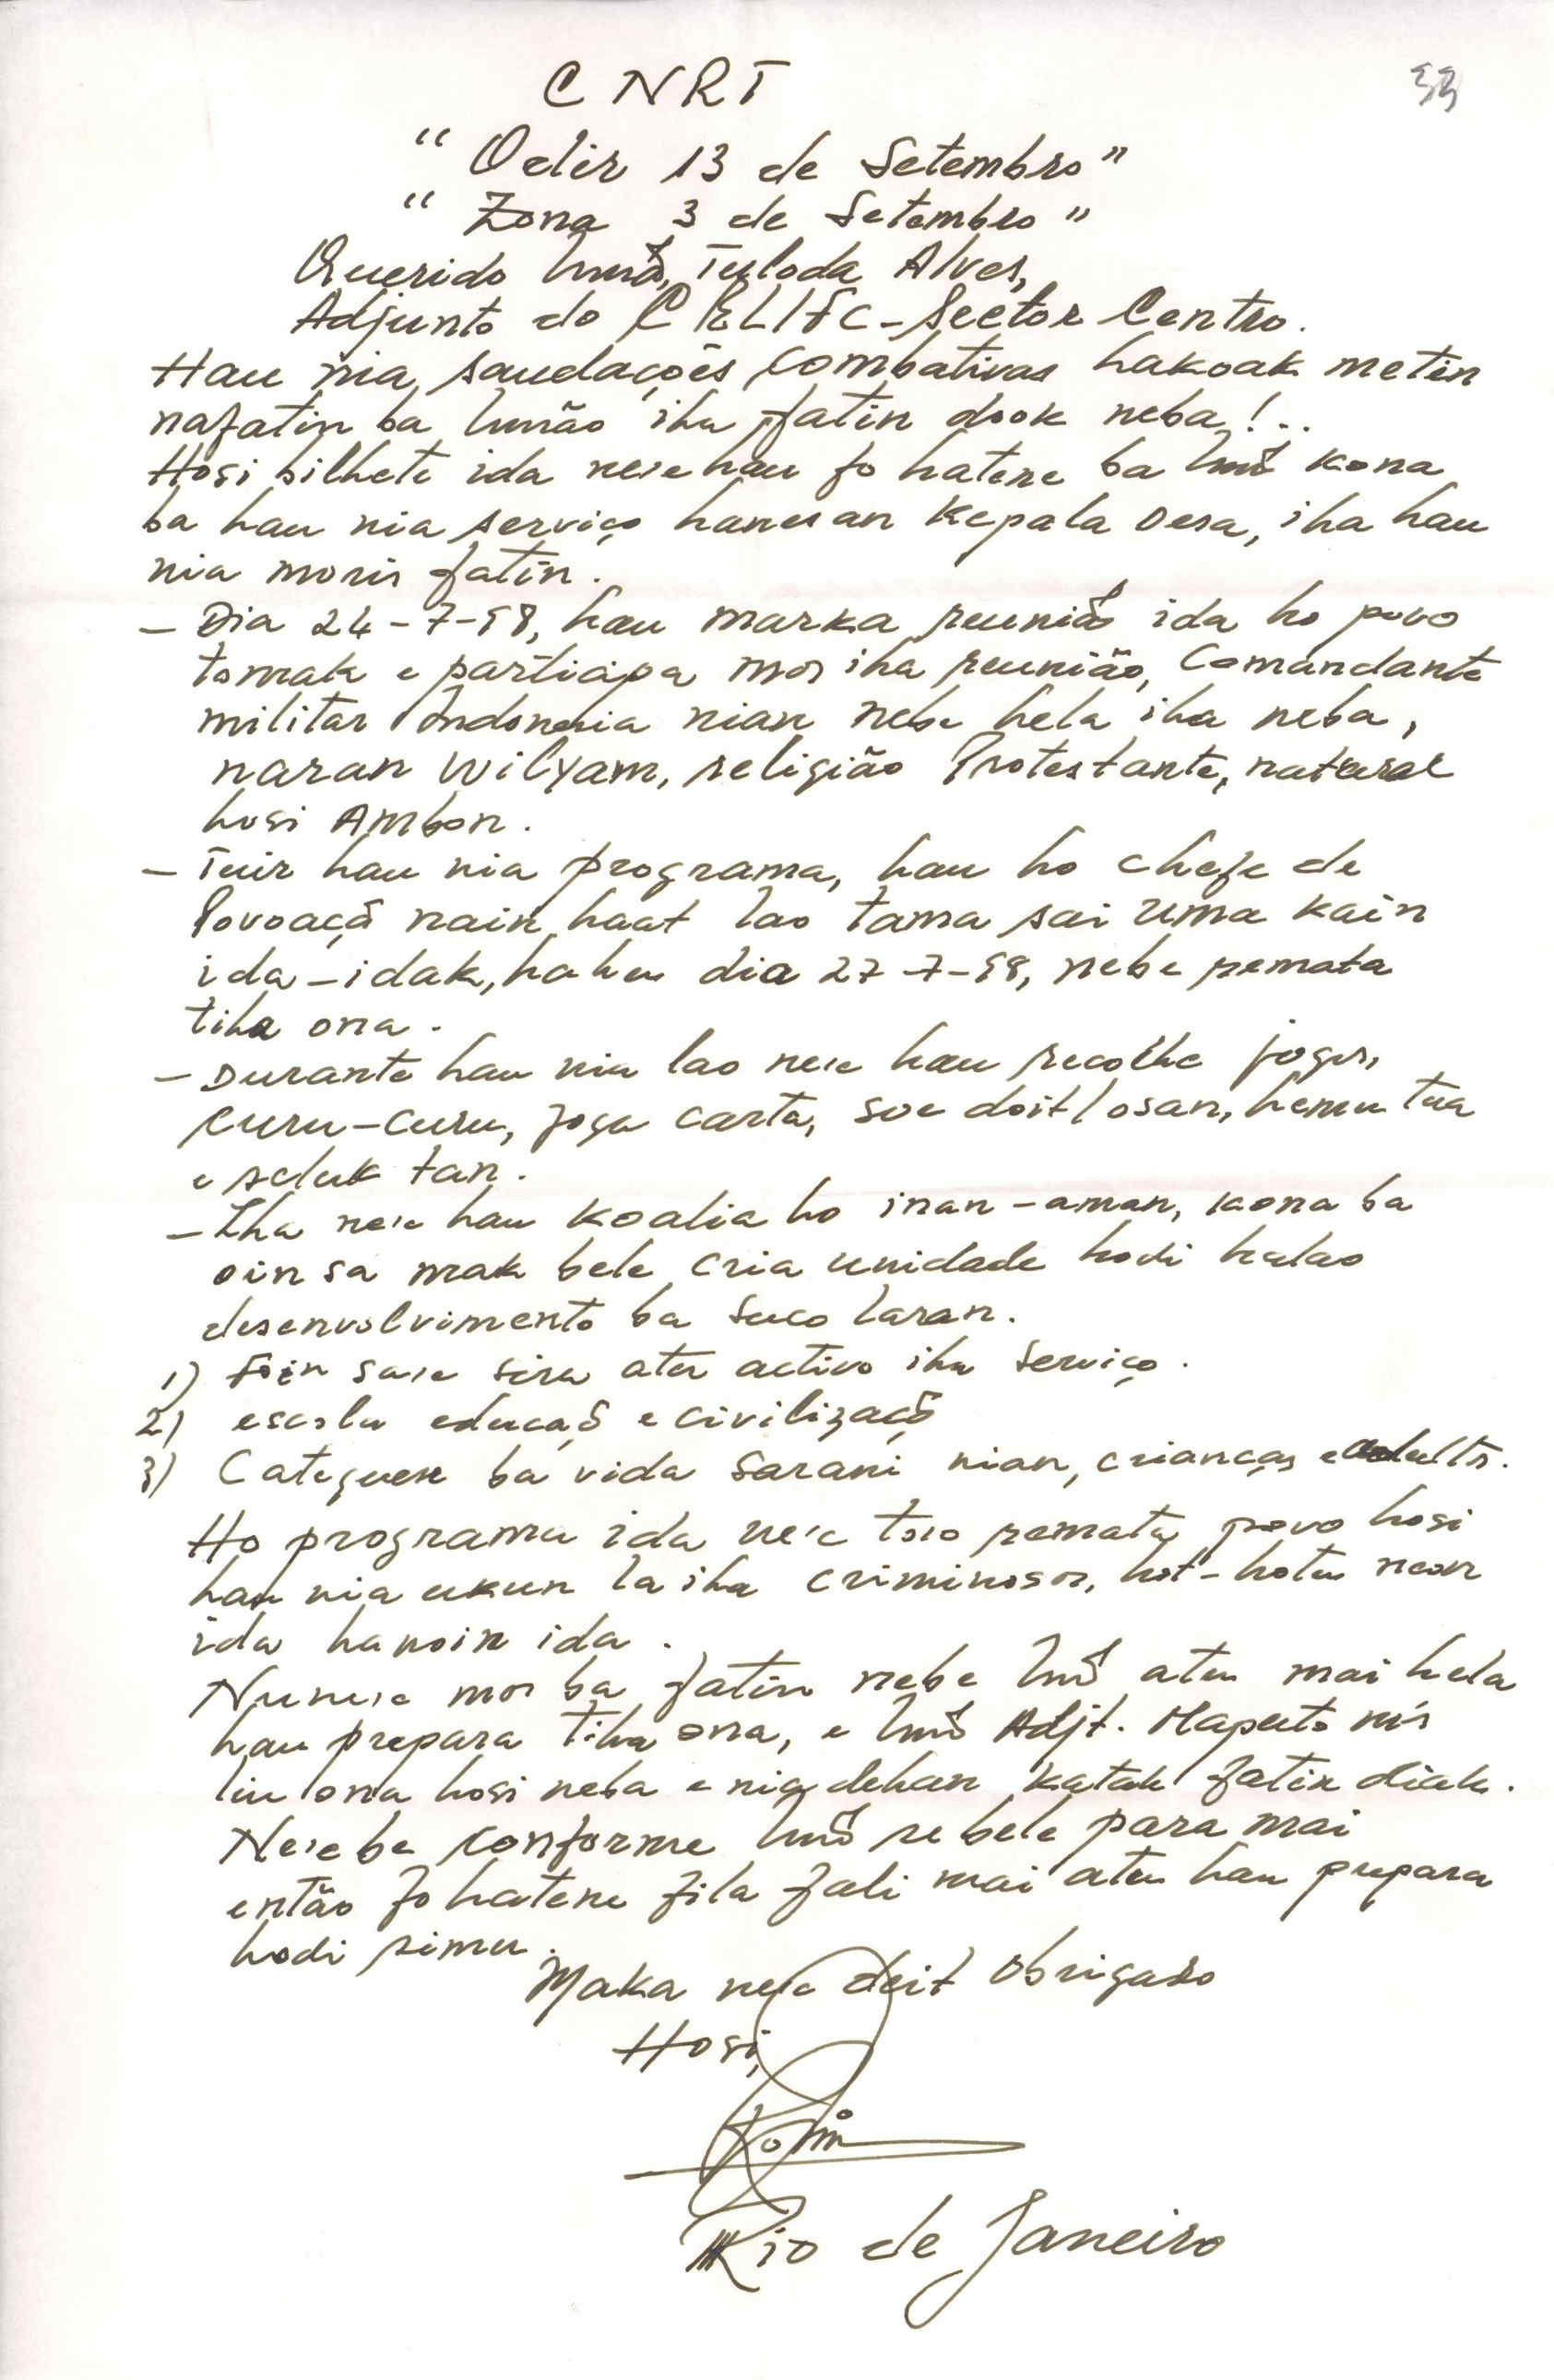 C N R T
"Odir 13 de Setembro"
"Zona 3 de Setembro"
Querido Irmão, Tuloda Alves,
Adjunto do CRLIFC - Sector Centro.
Hau nia, saudações combativas hakoak metin
nafatin ba Irmão iha fatin dook neba!..
Hosi bilhete ida nee hau fo hatene ba Irmão kona
ba hau nia serviço hanesan Kepala Desa, iha hau
nia moris fatin.
- Dia 24-7-98, hau marka reunião ida ho povo
tomak e participa mos iha reunião, Comandante
militar Indonesia nian nebe hela iha neba,
naran Wilyam, religião Protestante, natural
hosi Ambon.
- Tuir hau nia programa, hau ho chefe de
Povoação nain haat lao tama sai uma kain
ida-idak, hahu dia 27-7-98, nebe remata
tiha ona.
- Durante hau nia lao nee hau recolhe jogos,
curu-curu, joga carta, soe doit losan, hemu tua
e seluk tan.
- Iha nee hau koalia ho inan-aman, kona ba
oin sa mak bele cria unidade hodi halao
desenvolvimento ba Suco laran.
1) Foin sae sira atu activo iha serviço.
2) escola educação e civilização
3) Catequese ba vida sarani nian, crianças e adultos.
Ho programa ida nee too remata povo hosi
hau nia ukun la iha criminosos, hot-hotu neon
ida hanoin ida.
Nunee mos ba fatin nebe Irmão atu mai hela
hau prepara tiha ona, e Irmão Adjt. Maputo mós
liu ona hosi neba e nia dehan katak fatin diak.
Neebe conforme Irmão se bele para mai
então fo hatene fila fali mai atu hau prepara
hodi simu.
Maka nee deit obrigado
Hosi,
Rio de Janeiro